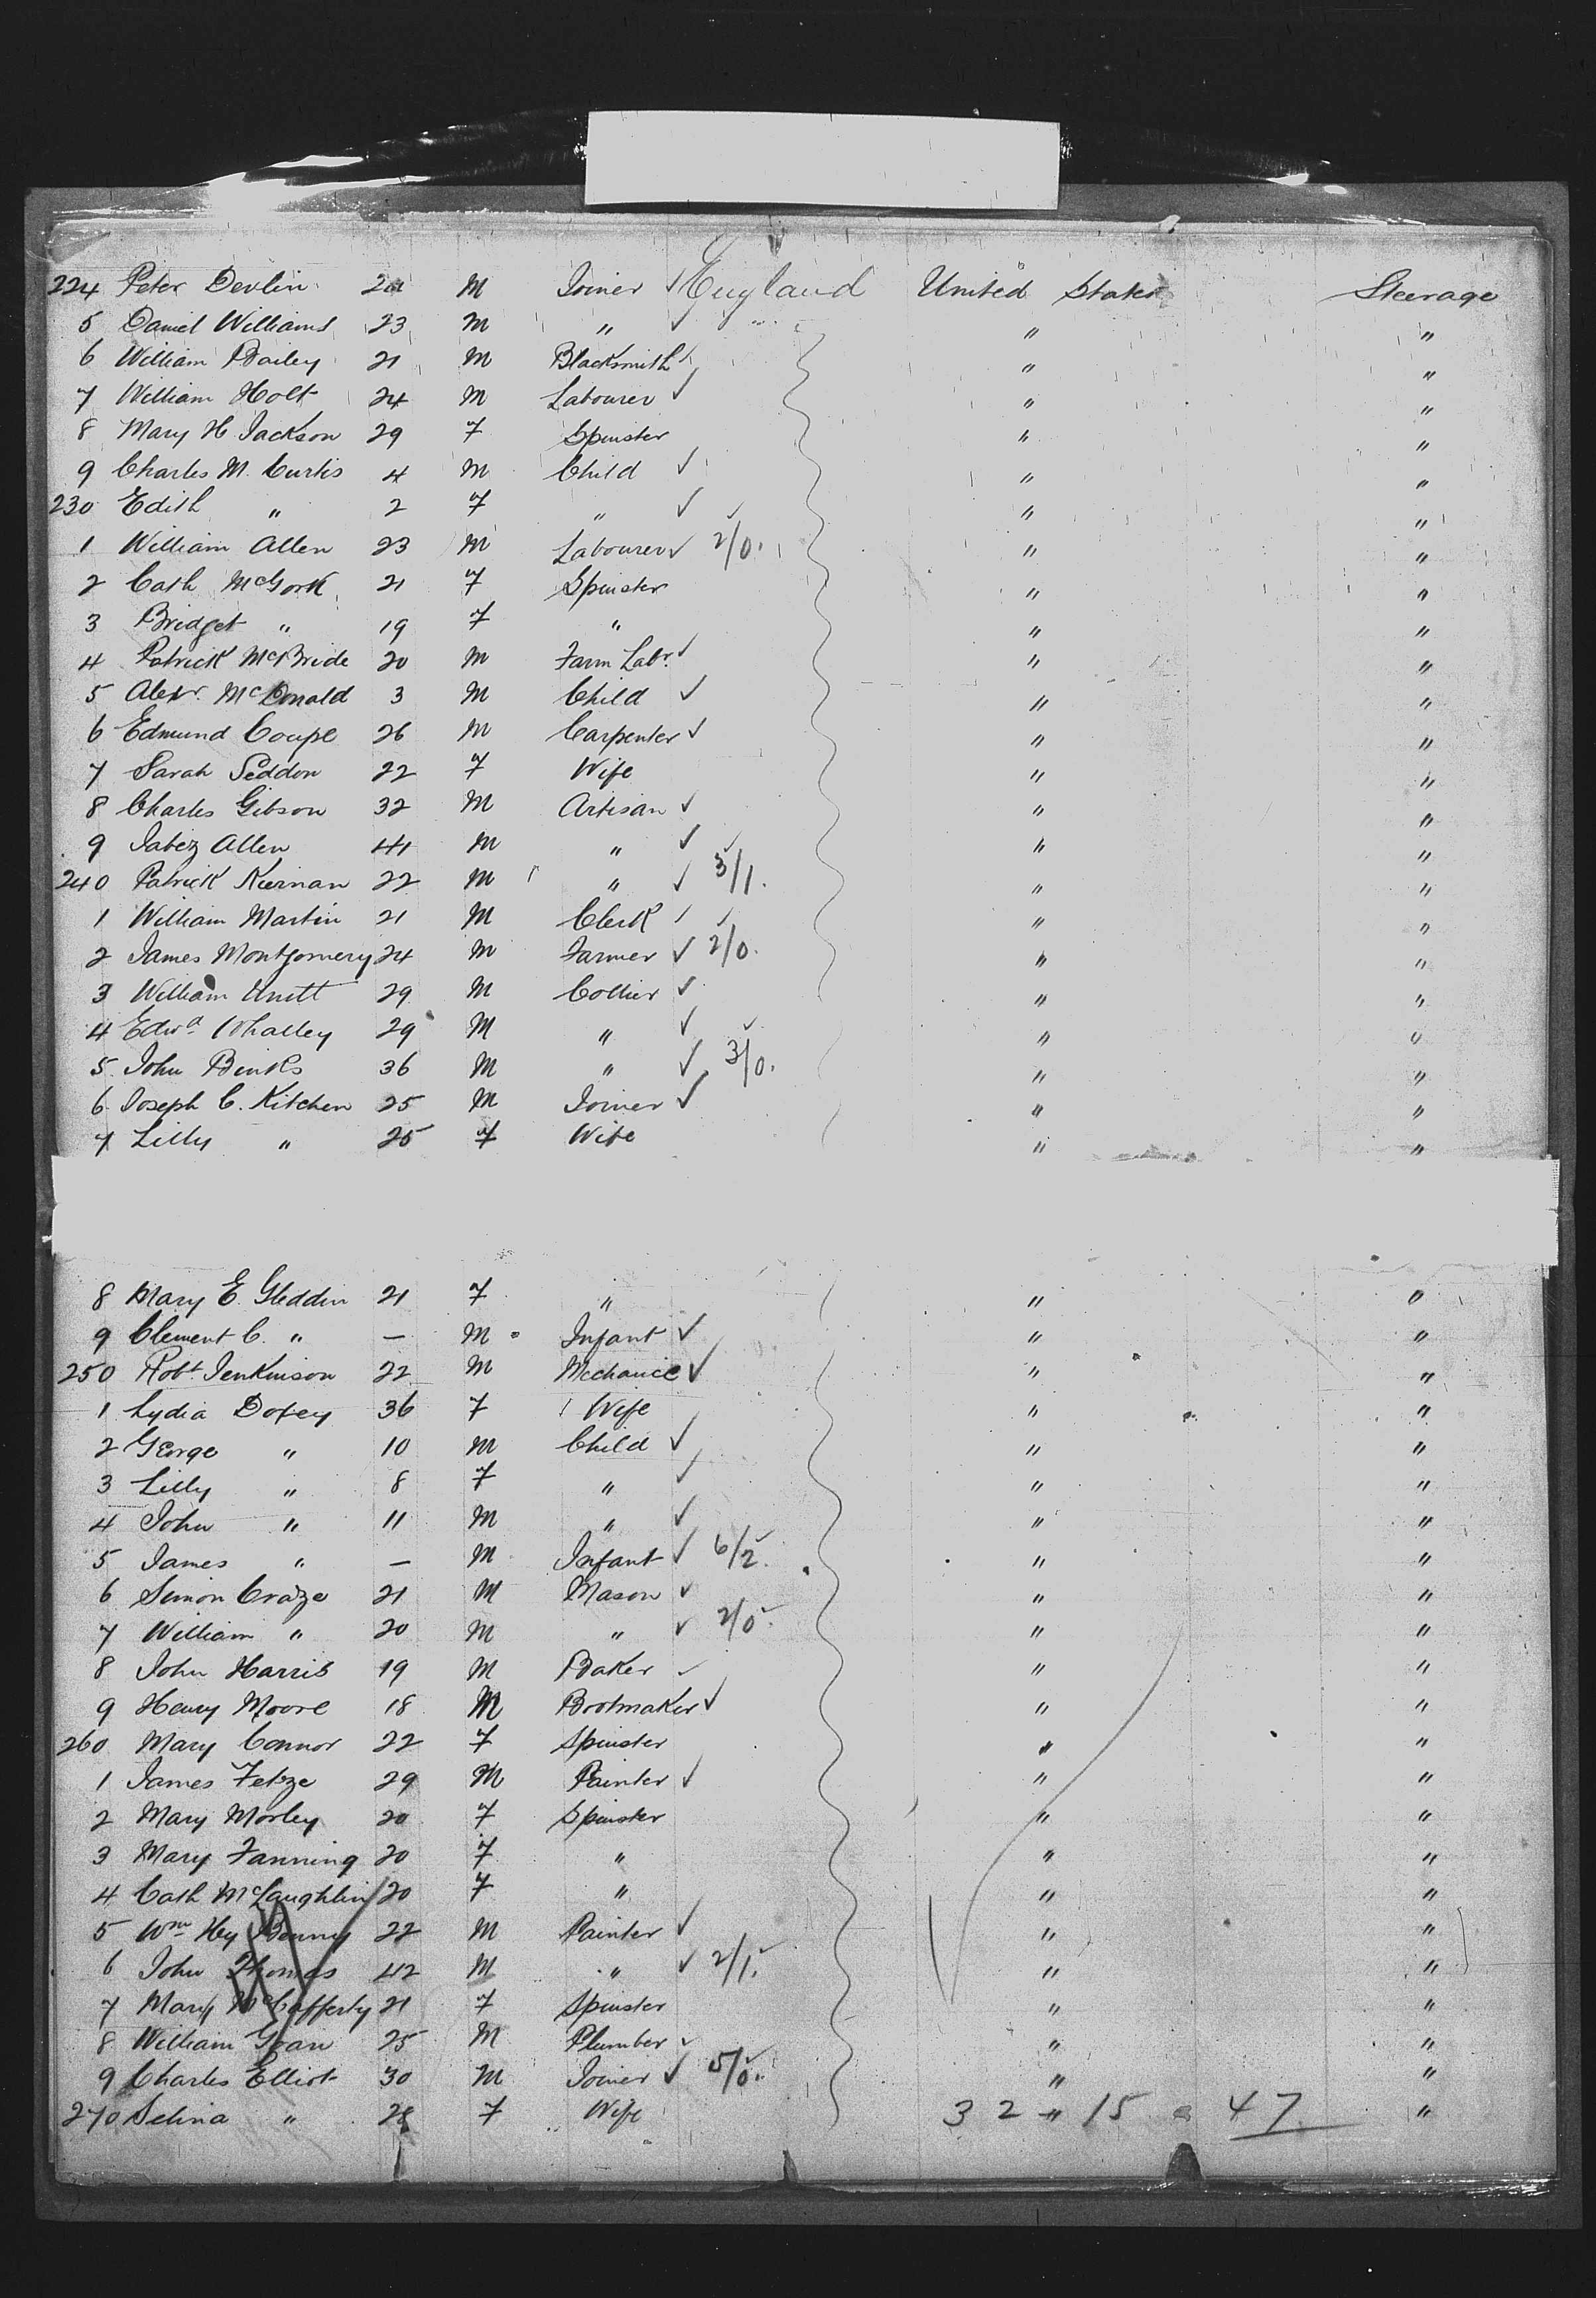 224 Peter Devlin 20 M Joiner ✓ England United States Steerage
5 Daniel Williams 23 M " ✓ " " "
6 William Bailey 21 M Blacksmith ✓ " "
7 William Holt 24 M Labourer ✓ " "
8 Mary H Jackson 29 F Spinster " "
9 Charles M. Curtis 4 M Child ✓ " "
230 Edith " 2 F " ✓ " "
1 William Allen 23 M Labourer ✓ 2/0. " "
2 Cath McGork 21 F Spinster " "
3 Bridget " 19 F " " "
4 Patrick McBride 20 M Farm Labr. ✓ " "
5 Alexr. McDonald 3 M Child ✓ " "
6 Edmund Coupe 26 M Carpenter ✓ " "
7 Sarah Seddon 22 F Wife " "
8 Charles Gibson 32 M Artisan ✓ " "
9 Jabez Allen 41 M " ✓ " "
240 Patrick Kiernan 22 M " ✓ 3/1. " "
1 William Martin 21 M Clerk ✓ " "
2 James Montgomery 24 M Farmer ✓ 2/0. " "
3 William Unitt 29 M Collier ✓ " "
4 Edwd Whalley 29 M " ✓ " "
5 John Binks 36 M " ✓ 3/0. " "
6 Joseph C. Kitchen 25 M Joiner ✓ " "
7 Lilly " 25 F Wife " "
8 Mary E. Gleddin 21 F " " "
9 Clement C. " — M Infant ✓ " "
250 Robt Jenkinson 22 M Mechanic ✓ " "
1 Lydia Doxey 36 F Wife " "
2 George " 10 M Child ✓ " "
3 Lilly " 8 F " ✓ " "
4 John " 11 M " ✓ " "
5 James " — M Infant ✓ 6/2. " "
6 Simon Craze 21 M Mason ✓ " "
7 William " 20 M " ✓ 2/0. " "
8 John Harris 19 M Baker ✓ " "
9 Henry Moore 18 M Bootmaker ✓ " "
260 Mary Connor 22 F Spinster " "
1 James 29 M Painter ✓ " "
2 Mary Morley 20 F Spinster " "
3 Mary Fanning 20 F " " "
4 Cath McLaughlin 20 F " " "
5 Wm Hy 22 M Painter ✓ " "
6 John Thomas 42 M " ✓ 2/1. " "
7 Mary McCafferty 21 F Spinster " "
8 William 25 M Plumber ✓ " "
9 Charles Elliot 30 M Joiner ✓ 5/0. " "
270 Selina " 28 F Wife " "
32 " 15 = 47